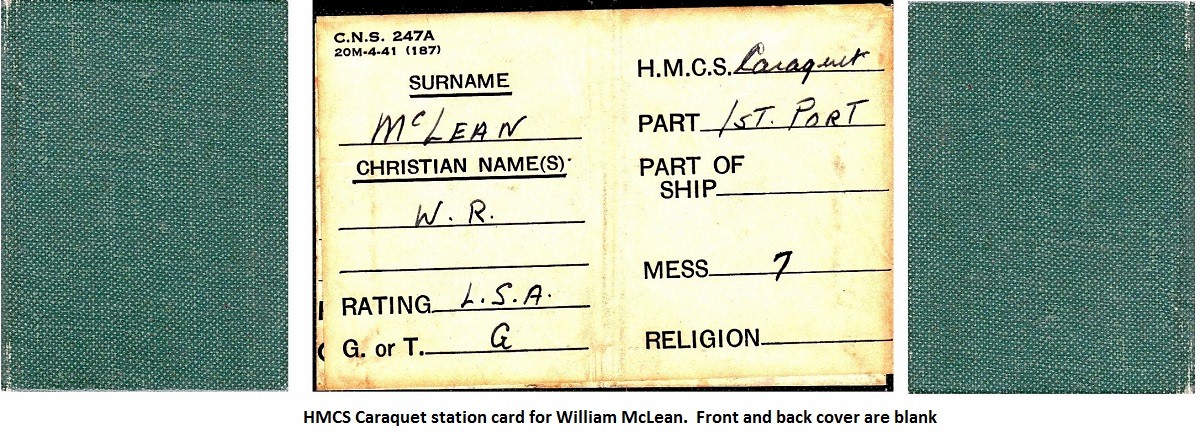 C.N.S. 247A
20M-4-41 (187)
SURNAME
McLEAN
CHRISTIAN NAME(S)
W. R.
RATING L.S.A.
G. or T. G
H.M.C.S. Caraquet
PART 1ST. PORT
PART OF
SHIP
MESS 7
RELIGION
HMCS Caraquet station card for William McLean. Front and back cover are blank